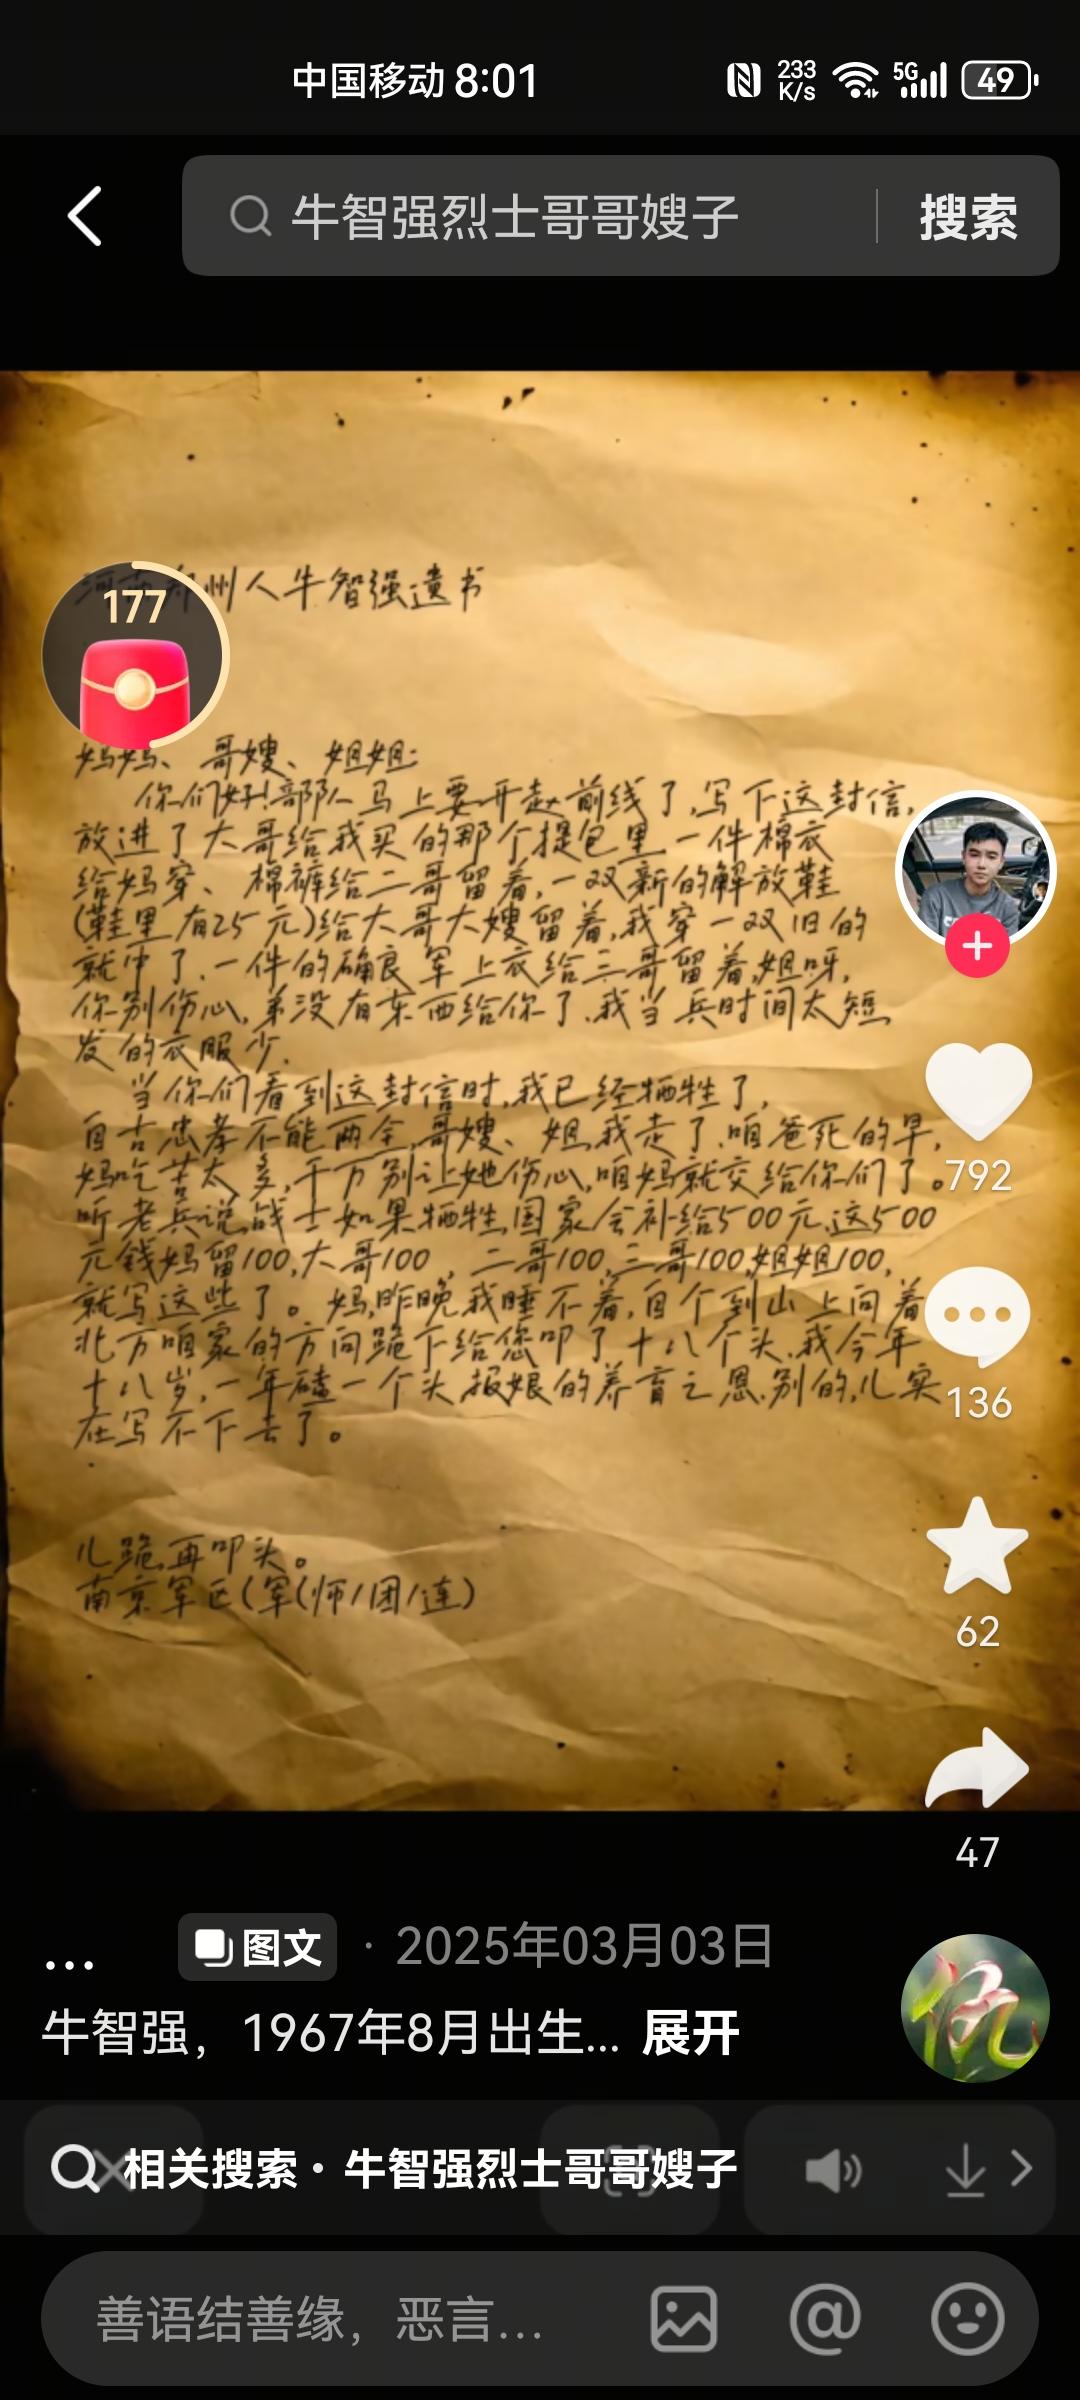 中国移动 8:01
233 K/s
5G
49
牛智强烈士哥哥嫂子
搜索
177
州人牛智强遗书
妈妈、哥嫂、姐姐:
你们好!部队马上要开赴前线了,写下这封信,
放进了大哥给我买的那个提包里一件棉衣
给妈穿、棉裤给二哥留着,一双新的解放鞋
(鞋里有25元)给大哥大嫂留着,我穿一双旧的
就中了,一件的确良军上衣给三哥留着,姐呀,
你别伤心,弟没有东西给你了,我当兵时间太短
发的衣服少.
当你们看到这封信时,我已经牺牲了,
自古忠孝不能两全,哥嫂、姐,我走了,咱爸死的早,
妈吃苦太多,千万别让她伤心,咱妈就交给你们了。
听老兵说,战士如果牺牲,国家会补给500元,这500
元錢妈留100,大哥100,二哥100,三哥100,姐姐100,
就写这些了。妈,昨晚我睡不着,自个到山上向着
北方咱家的方向跪下给您叩了十八个头,我今年
十八岁,一年磕一个头,报娘的养育之恩,别的,儿实
在写不下去了。
儿跪再叩头。
南京军区(军(师/团/连)
792
136
62
47
...
图文 · 2025年03月03日
牛智强，1967年8月出生... 展开
相关搜索 · 牛智强烈士哥哥嫂子
善语结善缘，恶言...